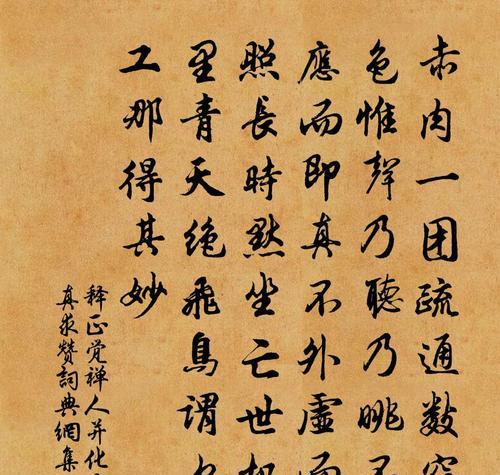 赤肉一团疏通數
色惟聲乃聽乃眺
應而即真不外虛而
照長時默坐亡世
里青天絶飛鳥謂
工那得其妙
释正觉禅人并化
真求赞詞典網集